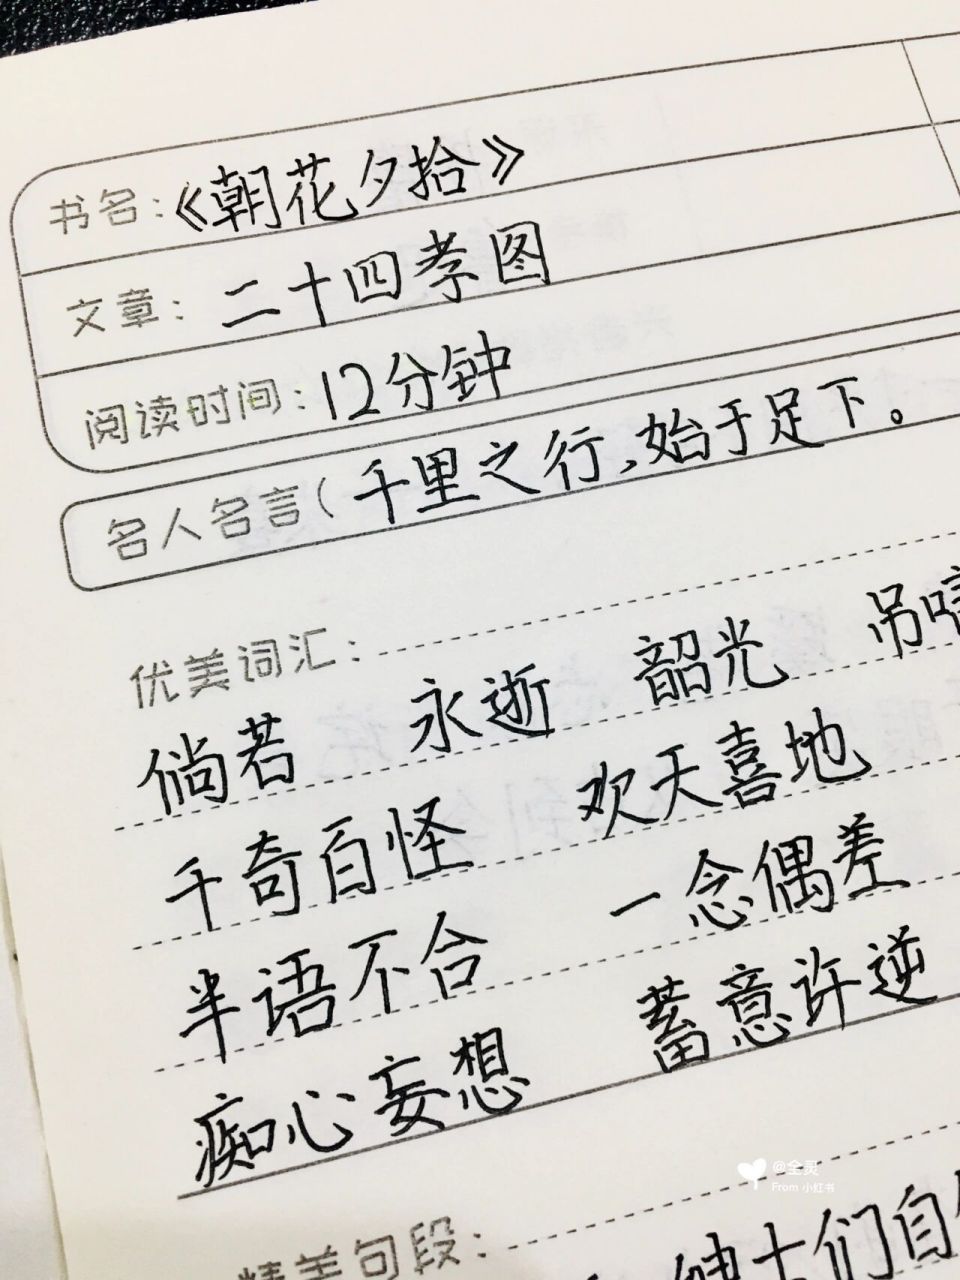 书名：《朝花夕拾》
文章：二十四孝图
阅读时间：12分钟
名人名言（千里之行，始于足下。
优美词汇：
倘若 永逝 韶光 吊
千奇百怪 欢天喜地
半语不合 一念偶差
痴心妄想 蓄意许逆
@全灵
From 小红书
精美句段：
绅士们自